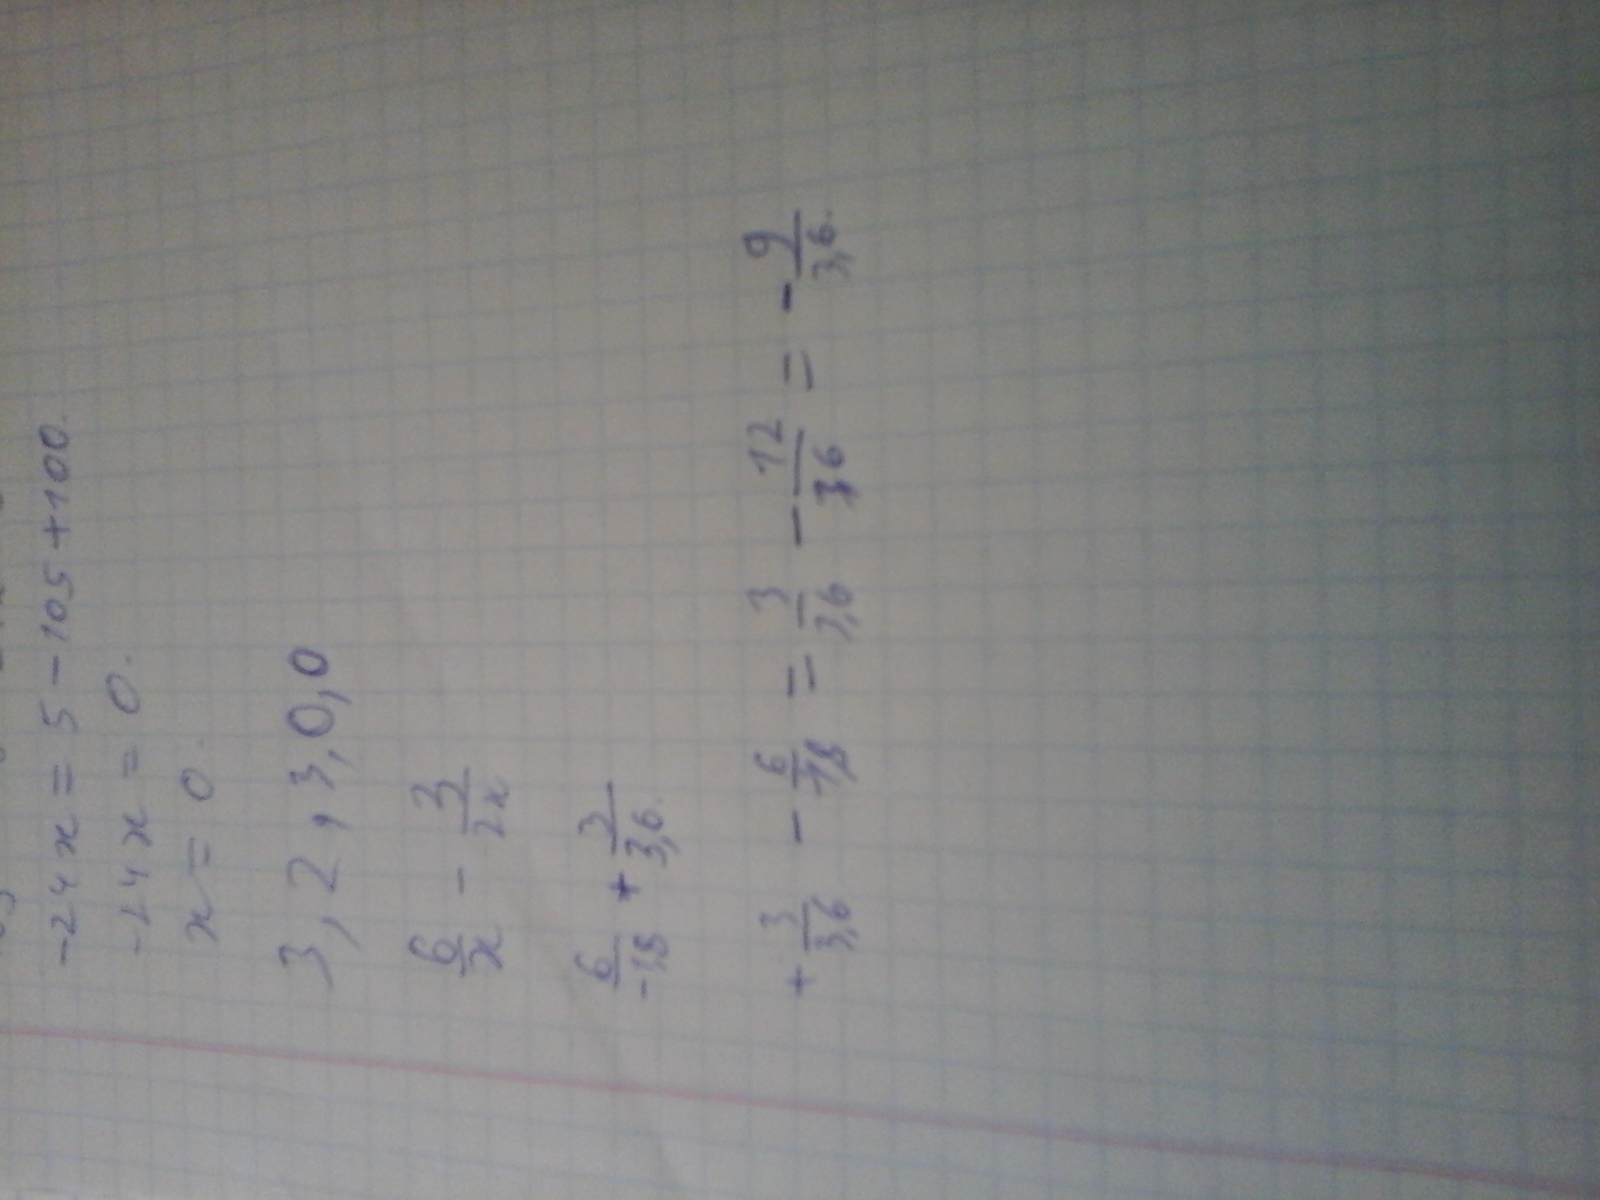 -24x = 5 - 105 + 100.
-24x = 0.
x = 0.
3, 2, 3, 0, 0
6/x - 3/2x
6/-1,8 + 3/3,6.
+ 3/3,6 - 6/1,8 = 3/3,6 - 12/3,6 = - 9/3,6.